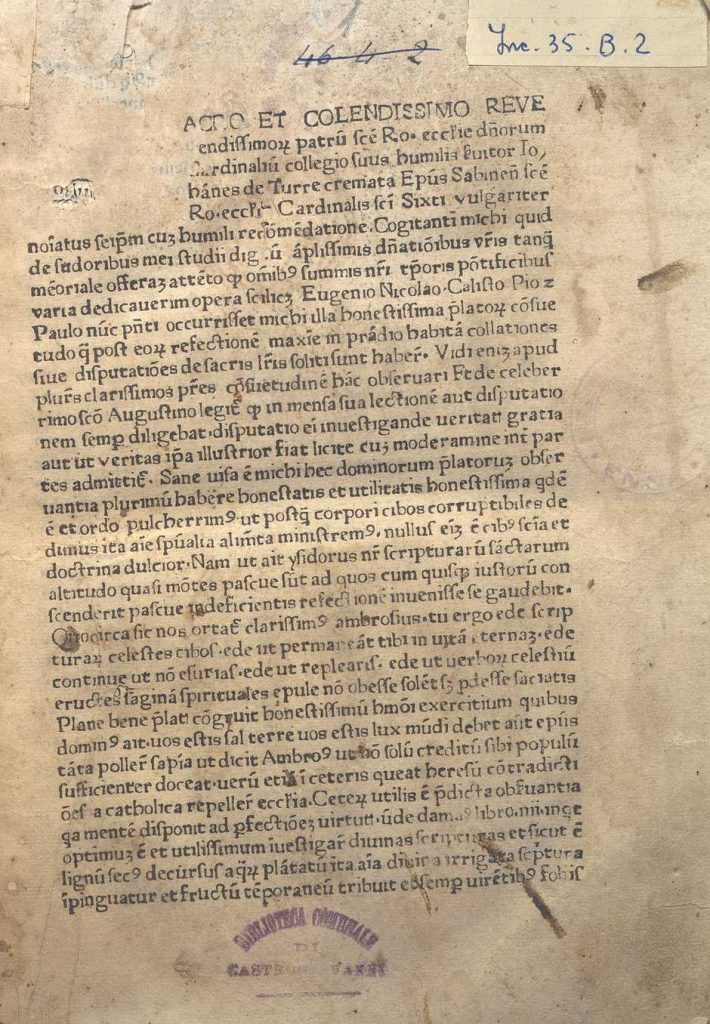 46 4 2
Inc. 35. B. 2
ACRO ET COLENDISSIMO REVE
endissimoꝝ patrũ scẽ Ro. eccłie dñorum
Cardinaliũ collegio suus humilis ſuitor Io,
hánes de Turre cremata Epũs Sabineñ scẽ
Ro. eccłie Cardinalis sci Sixti vulgariter
noĩatus seipm cuʒ humili recõmẽdatione. Cogitanti michi quid
de sudoribus mei studii dig ũ áplissimis dñatiõibus vr̃is tanq̃
mẽoriale offeraʒ attẽto qp oĩbꝰ summis nr̃i tp̃oris põtificibus
varia dedicauerim opera sciliʒ Eugenio Nicolao. Calisto Pio ⁊
Paulo nũc pñti occurrisset michi illa honestissima p̃latoꝝ cõsue
tudo q̃ post eoꝝ refectionẽ maxĩe in prádio habitá collationes
siue disputatiões de sacris lr̃is soliti sunt haber̃. Vidi eniʒ apud
plur̃s clarissimos pr̃es cõsuetudinẽ hác obseruari Et de celeber
rimo scõ Augustino legit̃ qp in mensa sua lectionẽ aut disputatio
nem semp diligebat. disputatio ei inuestigande ueritatis gratia
aut ut veritas ip̃a illustrior fiat licite cuʒ moderamine int̃ par
tes admittit̃. Sane uisa ẽ michi hec dominorum p̃latoruʒ obser
uantia plurimũ habere honestatis et utilitatis honestissima qdẽ
ẽ et ordo pulcherrimꝰ ut postq̃ corpori cibos corruptibiles de
dimus ita aĩe spũalia alimẽta ministremꝰ, nullus eĩʒ ẽ cibꝰ scĩa et
doctrina dulcior. Nam ut ait ysidorus nr̃ scripturarũ sáctarum
altitudo quasi mõtes pascue sũt ad quos cum quisqp iustorũ con
scenderit pascue indeficientis refectionẽ inuenisse se gaudebit.
Quocirca sic nos ortat̃ clarissimꝰ ambrosius. tu ergo ede scrip
turaꝝ celestes cibos. ede ut permaneát tibi in uitá eternaʒ. ede
continue ut nõ esurias. ede ut replearis. ede ut uerboꝝ celestiũ
eructes saginá spirituales epule nõ obesse solẽt sʒ pdesse saciatis
Plane bene p̃lati cõgruit honestissimũ hmõi exercitium quibus
dominꝰ ait. uos estis sal terre uos estis lux mũdi debet aũt epũs
tãta poller̃ sapĩa ut dicit Ambroꝰ ut nõ solũ creditũ sibi populũ
sufficienter doceat. uerũ etiá i ceteris queat heresũ cõtradicti
ões a catholica repeller̃ eccłia. Ceteꝝ utilis ẽ p̃dicta obſuantia
q̃a mentẽ disponit ad pfectiõeʒ virtutũ. ũde damaꝰ libro. iiii. inqt
optimuʒ ẽ et utilissimum iuestigar̃ diuinas scripturas et sicut ẽ
lignũ secꝰ decursus aq̃ꝝ plátatũ ita. aĩa diuina irrigata sc̃ptura
ĩpinguatur et fructũ tẽporaneũ tribuit et semp uirẽtibꝰ folijs
BIBLIOTECA COMUNALE
DI